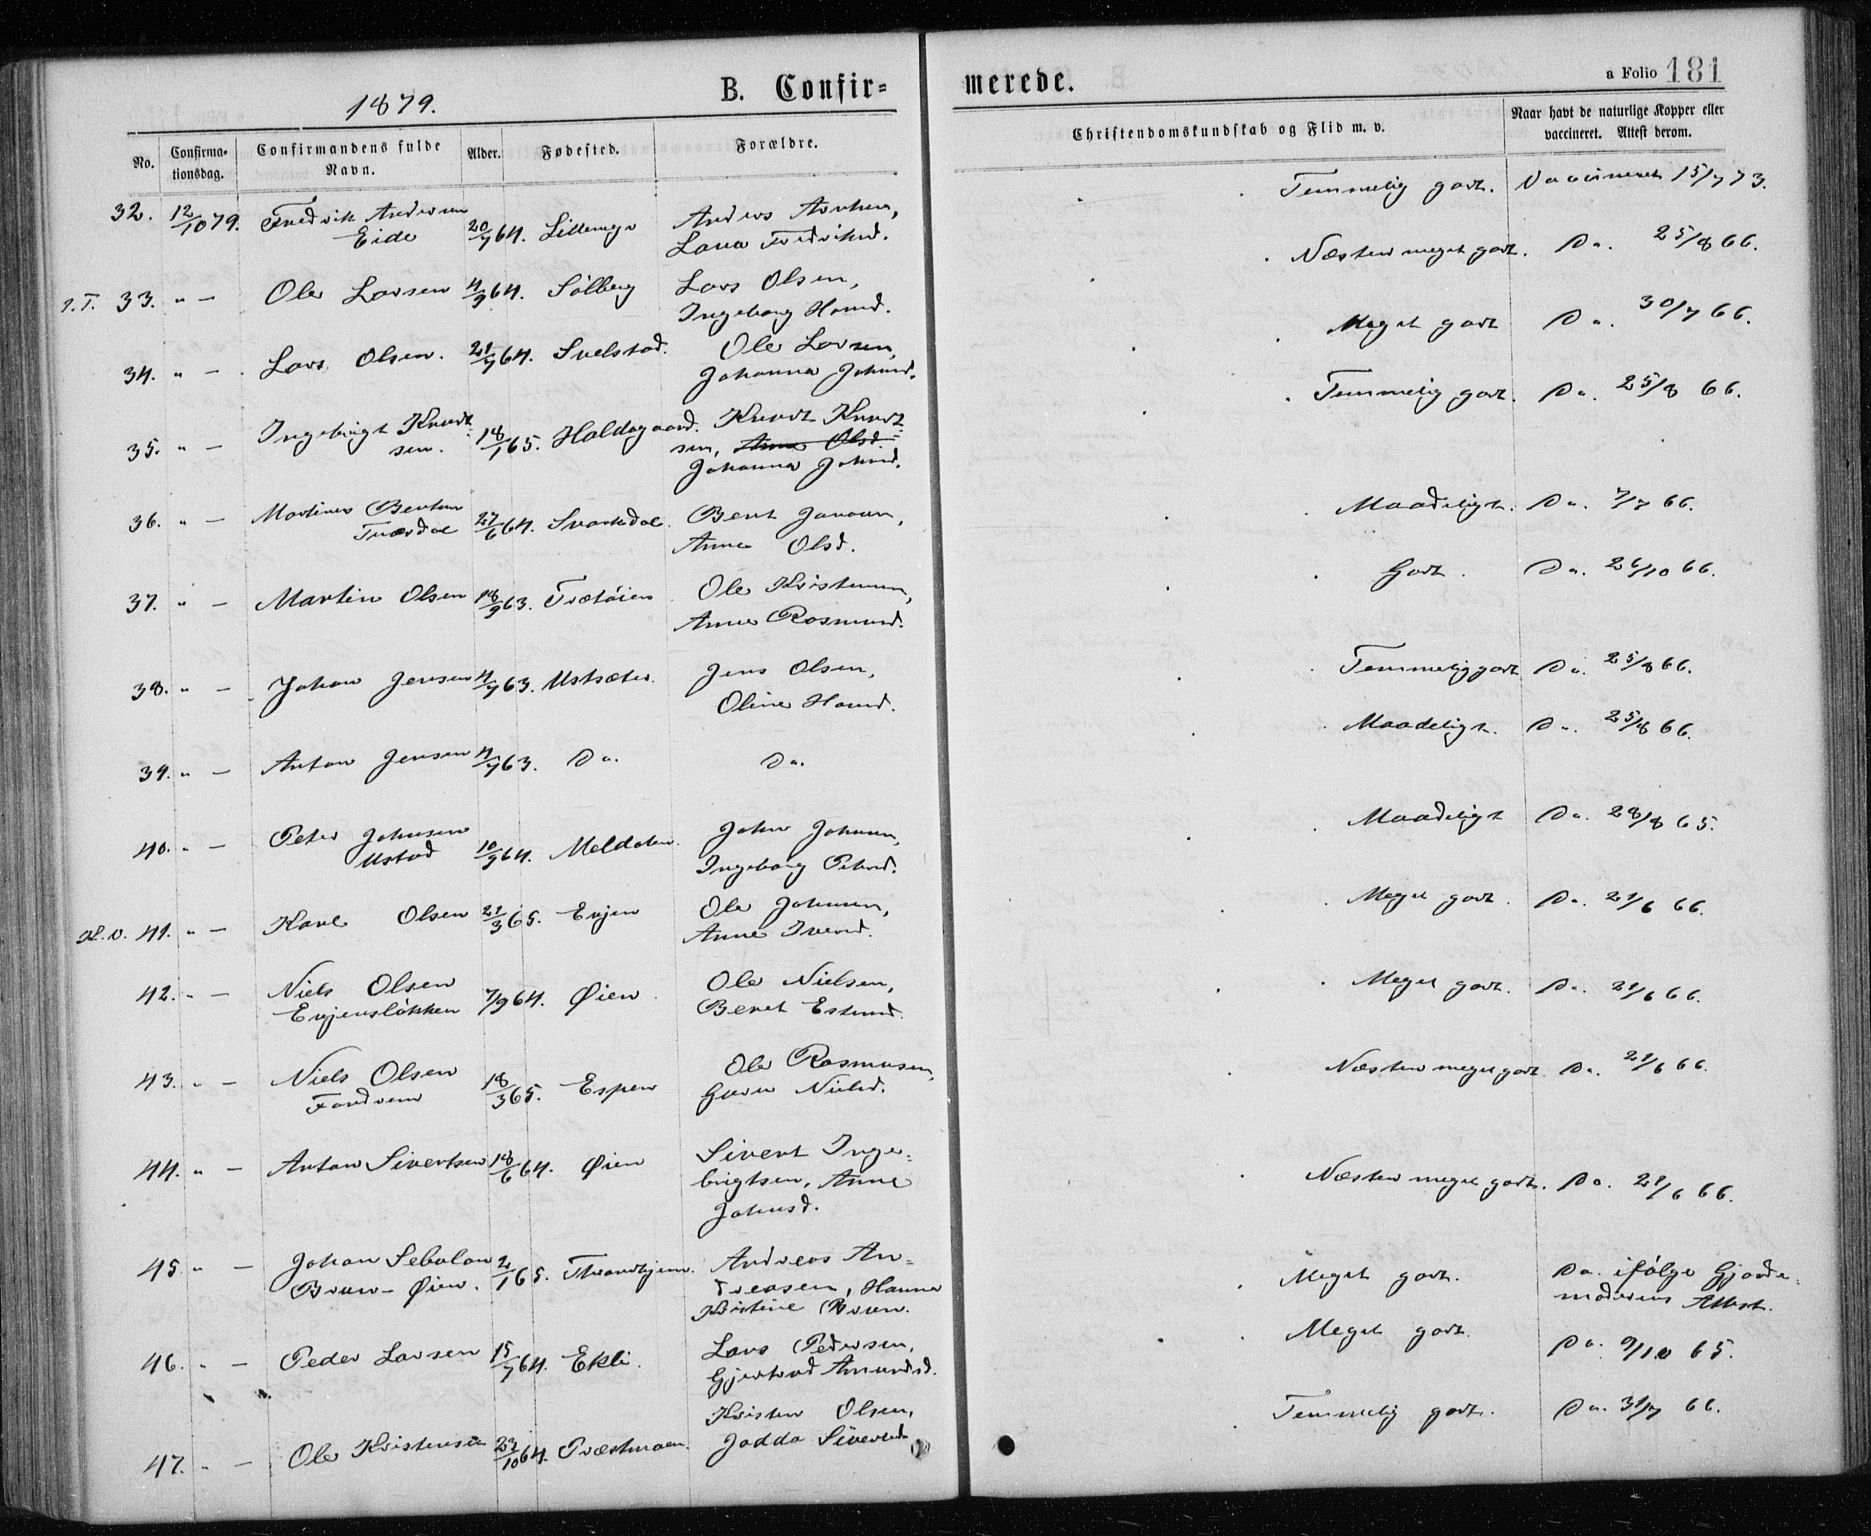 1879.
B. Confir=
merede.
a Folio 181
No.
Confirma-
tionsdag.
Confirmandens fulde
Navn.
Alder.
Fødested.
Forældre.
Christendomskundskab og Flid m. v.
Naar havt de naturlige Kopper eller
vaccineret. Attest derom.
32. 12/10 79. Fredrik Andersen 20/7 64. Anders
Eide
Lava Fredriksd.
Temmelig godt. Vaccineret 15/7 73.
1.T. 33. " — Ole Larsen 4/9 64. Sølberg Lars Olsen,
Ingeborg Hansd.
Næsten meget godt. Do. 25/8 66.
34. " — Lars Olsen. 21/7 64. Svelstad. Ole Larsen,
Johanna Johnsd.
Meget godt Do. 30/7 66.
35. " — Ingebrigt Knudt- 18/1 65. Haldogaard. Knudt Knudt-
sen. sen, Anne Olsd.
Johanna Johnsd.
Temmelig godt. Do. 25/8 66.
36. " — Martinus Bentsen 27/6 64. Svartdal. Bent Jonsen,
Tverdal Anne Olsd.
Maadeligt. Do. 7/7 66.
37. " — Martin Olsen 18/9 63. Trætøien Ole Kristensen,
Anne Rasmusd.
Godt. Do. 26/10 66.
38. " — Johan Jensen 4/7 63. Ustsæter. Jens Olsen,
Oline Hansd.
Temmelig godt Do. 25/8 66.
39. " — Anton Jensen 4/7 63. Do. Do.
Maadeligt. Do. 25/8 66.
40. " — Peter Johnsen 10/9 64. John Johnsen,
Ustad Ingeborg Petersd.
Maadeligt Do. 28/8 65.
K.V. 41. " — Karl Olsen 21/3 65. Evjen Ole Johnsen,
Anne Iversd.
Meget godt. Do. 21/6 66.
42. " — Niels Olsen 7/9 64. Øien Ole Nielsen,
Evjensløkken Beret Estensd.
Meget godt. Do. 21/6 66.
43. " — Niels Olsen 18/3 65. Espen Ole Rasmusen,
Nielsd.
Næsten meget godt. Do. 21/6 66.
44. " — Anton Sivertsen 18/6 64. Øien Sivert Inge-
brigtsen, Anne
Johnsd.
Næsten meget godt. Do. 21/6 66.
45 " — Johan 2/1 65. Throndhjem. Andreas An-
Bruun-Øien. dreasen, Hanna
Kristine Bruun.
Meget godt. Do. ifølge Gjorde-
moderens Attest.
46. " — Peder Larsen 15/7 64. Ekli. Lars Pedersen,
Gjertrud Amundsd.
Meget godt. Do. 9/10 65.
47. " — Ole Kristensen 23/10 64. Præstmoen. Kristen Olsen,
Jodda Sivertsd.
Temmelig godt. Do. 31/7 66.